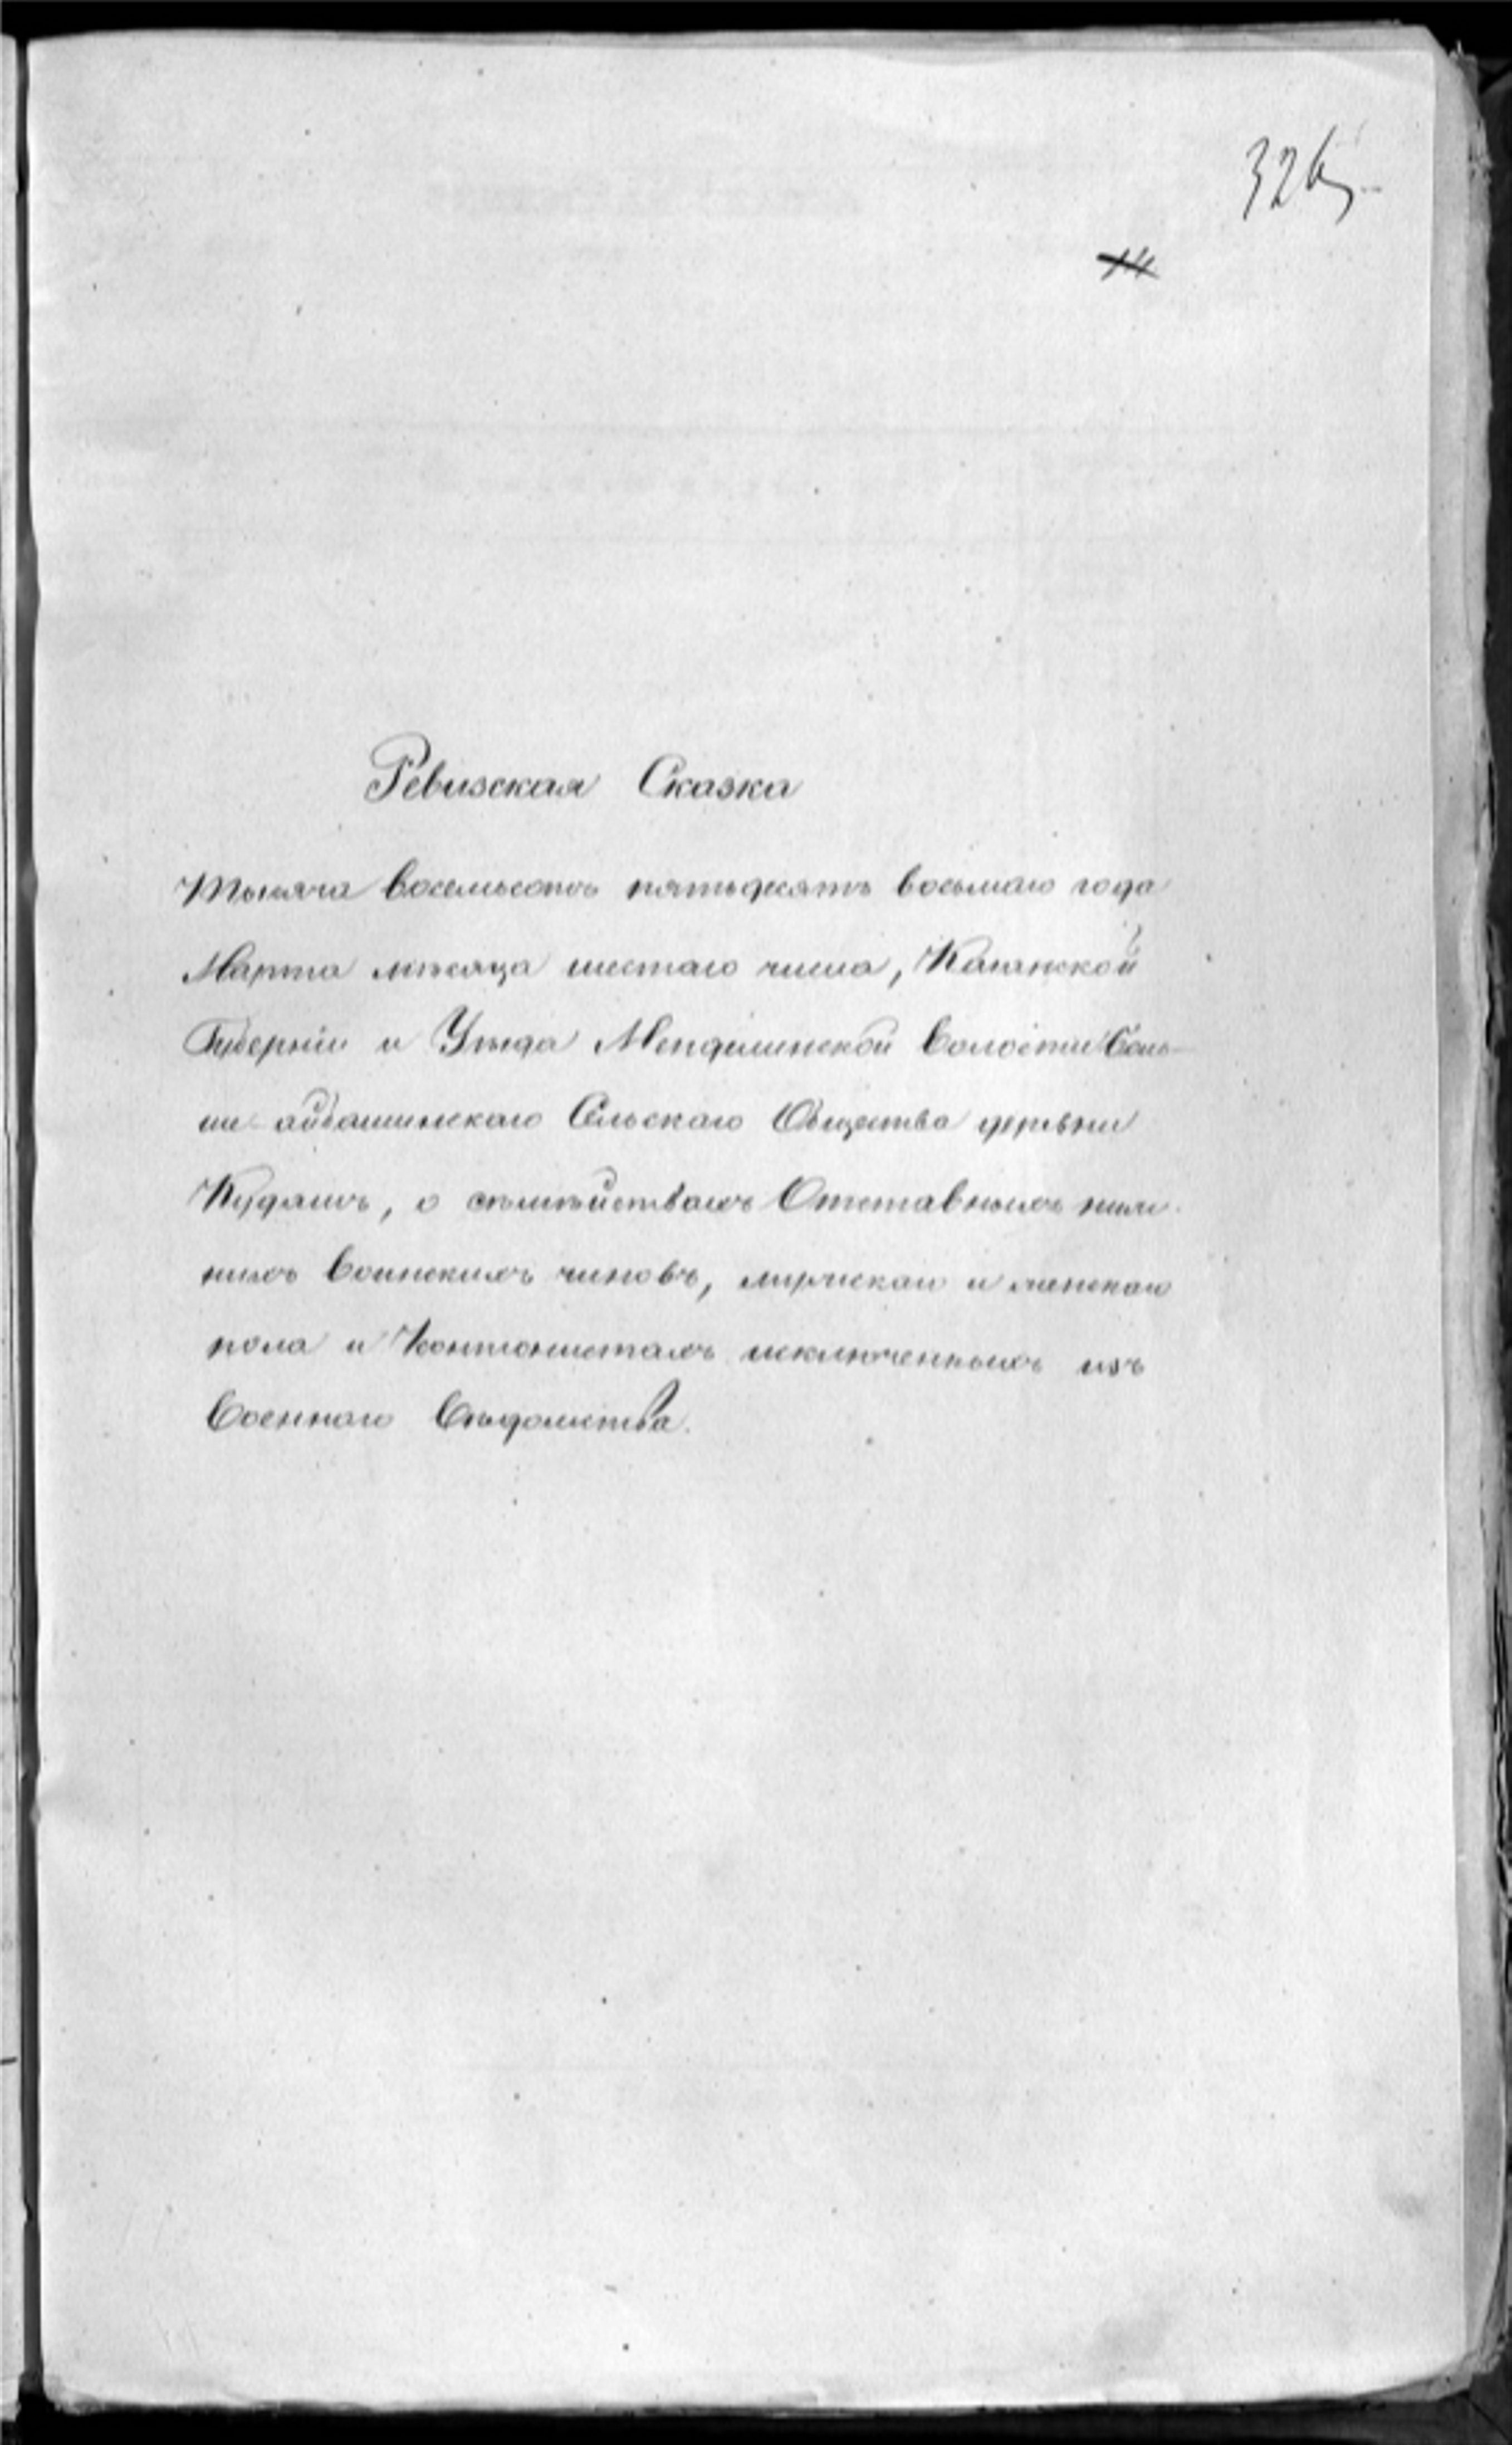 326
14
Ревизская Сказка
Тысяча восемьсотъ пятьдесятъ восьмаго года
Марта мѣсяца шестаго числа, Казанской
Губерніи и Уѣзда Менделинской волости Боль-
ше айбашинскаго Сельскаго Общества деревни
Кудашъ, о сѣмѣйствахъ Отставныхъ ниж-
нихъ воинскихъ чиновъ, мужскаго и женскаго
пола и Кантонистахъ исключенныхъ изъ
Военнаго Вѣдомства.